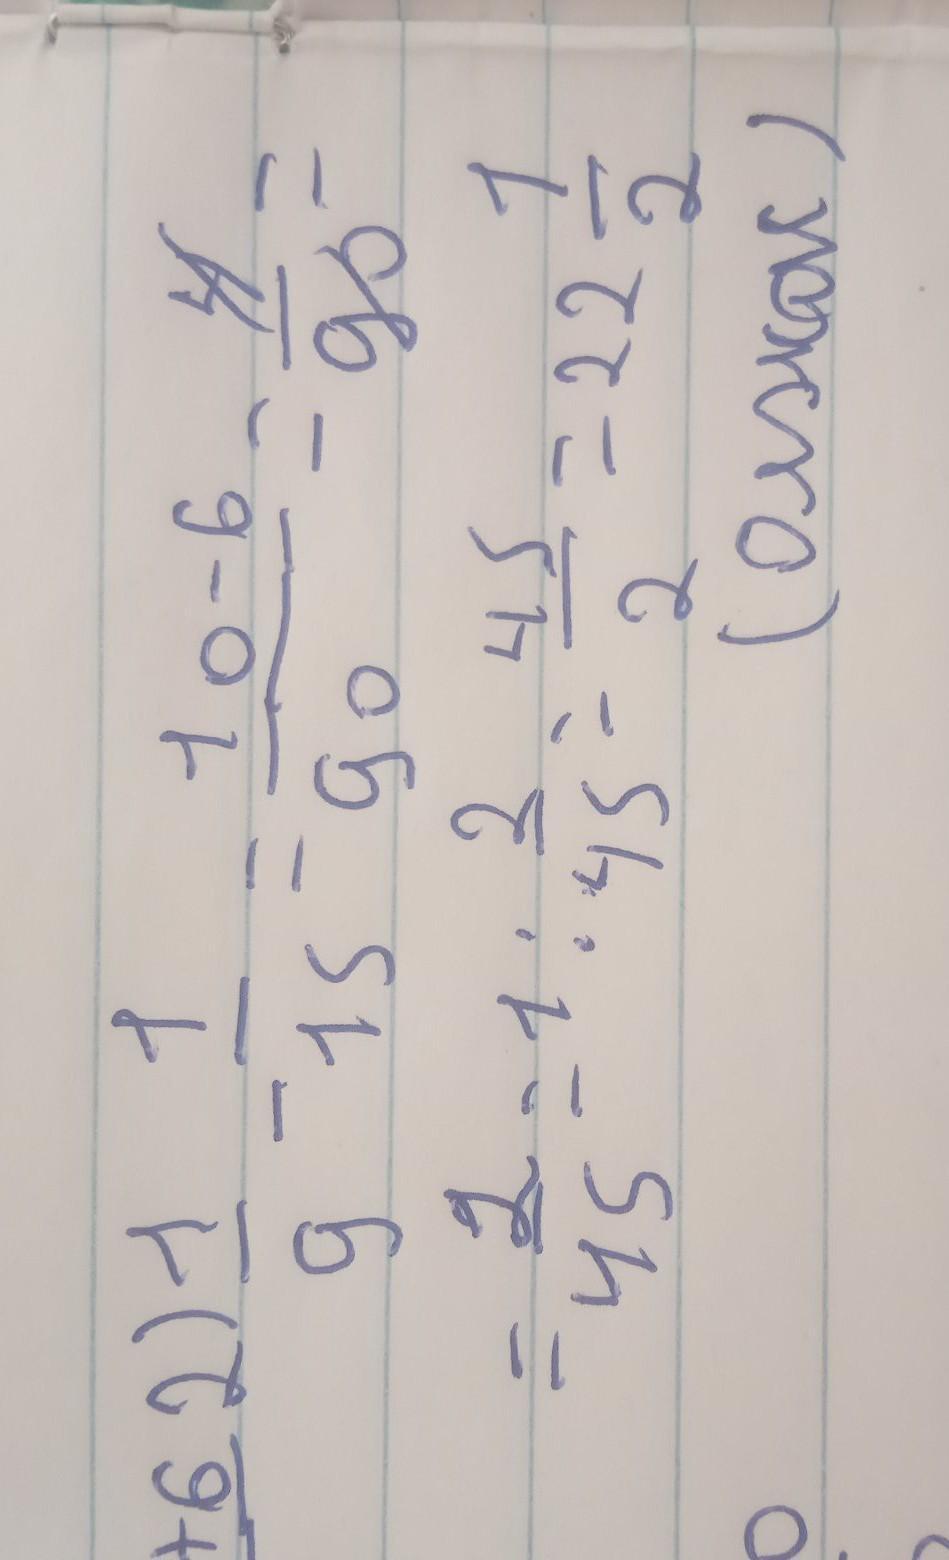 +6 2) 1/9 - 1/15 = (10-6)/90 = 4/90 =
= 2/45; 1 : 2/45 = 45/2 = 22 1/2